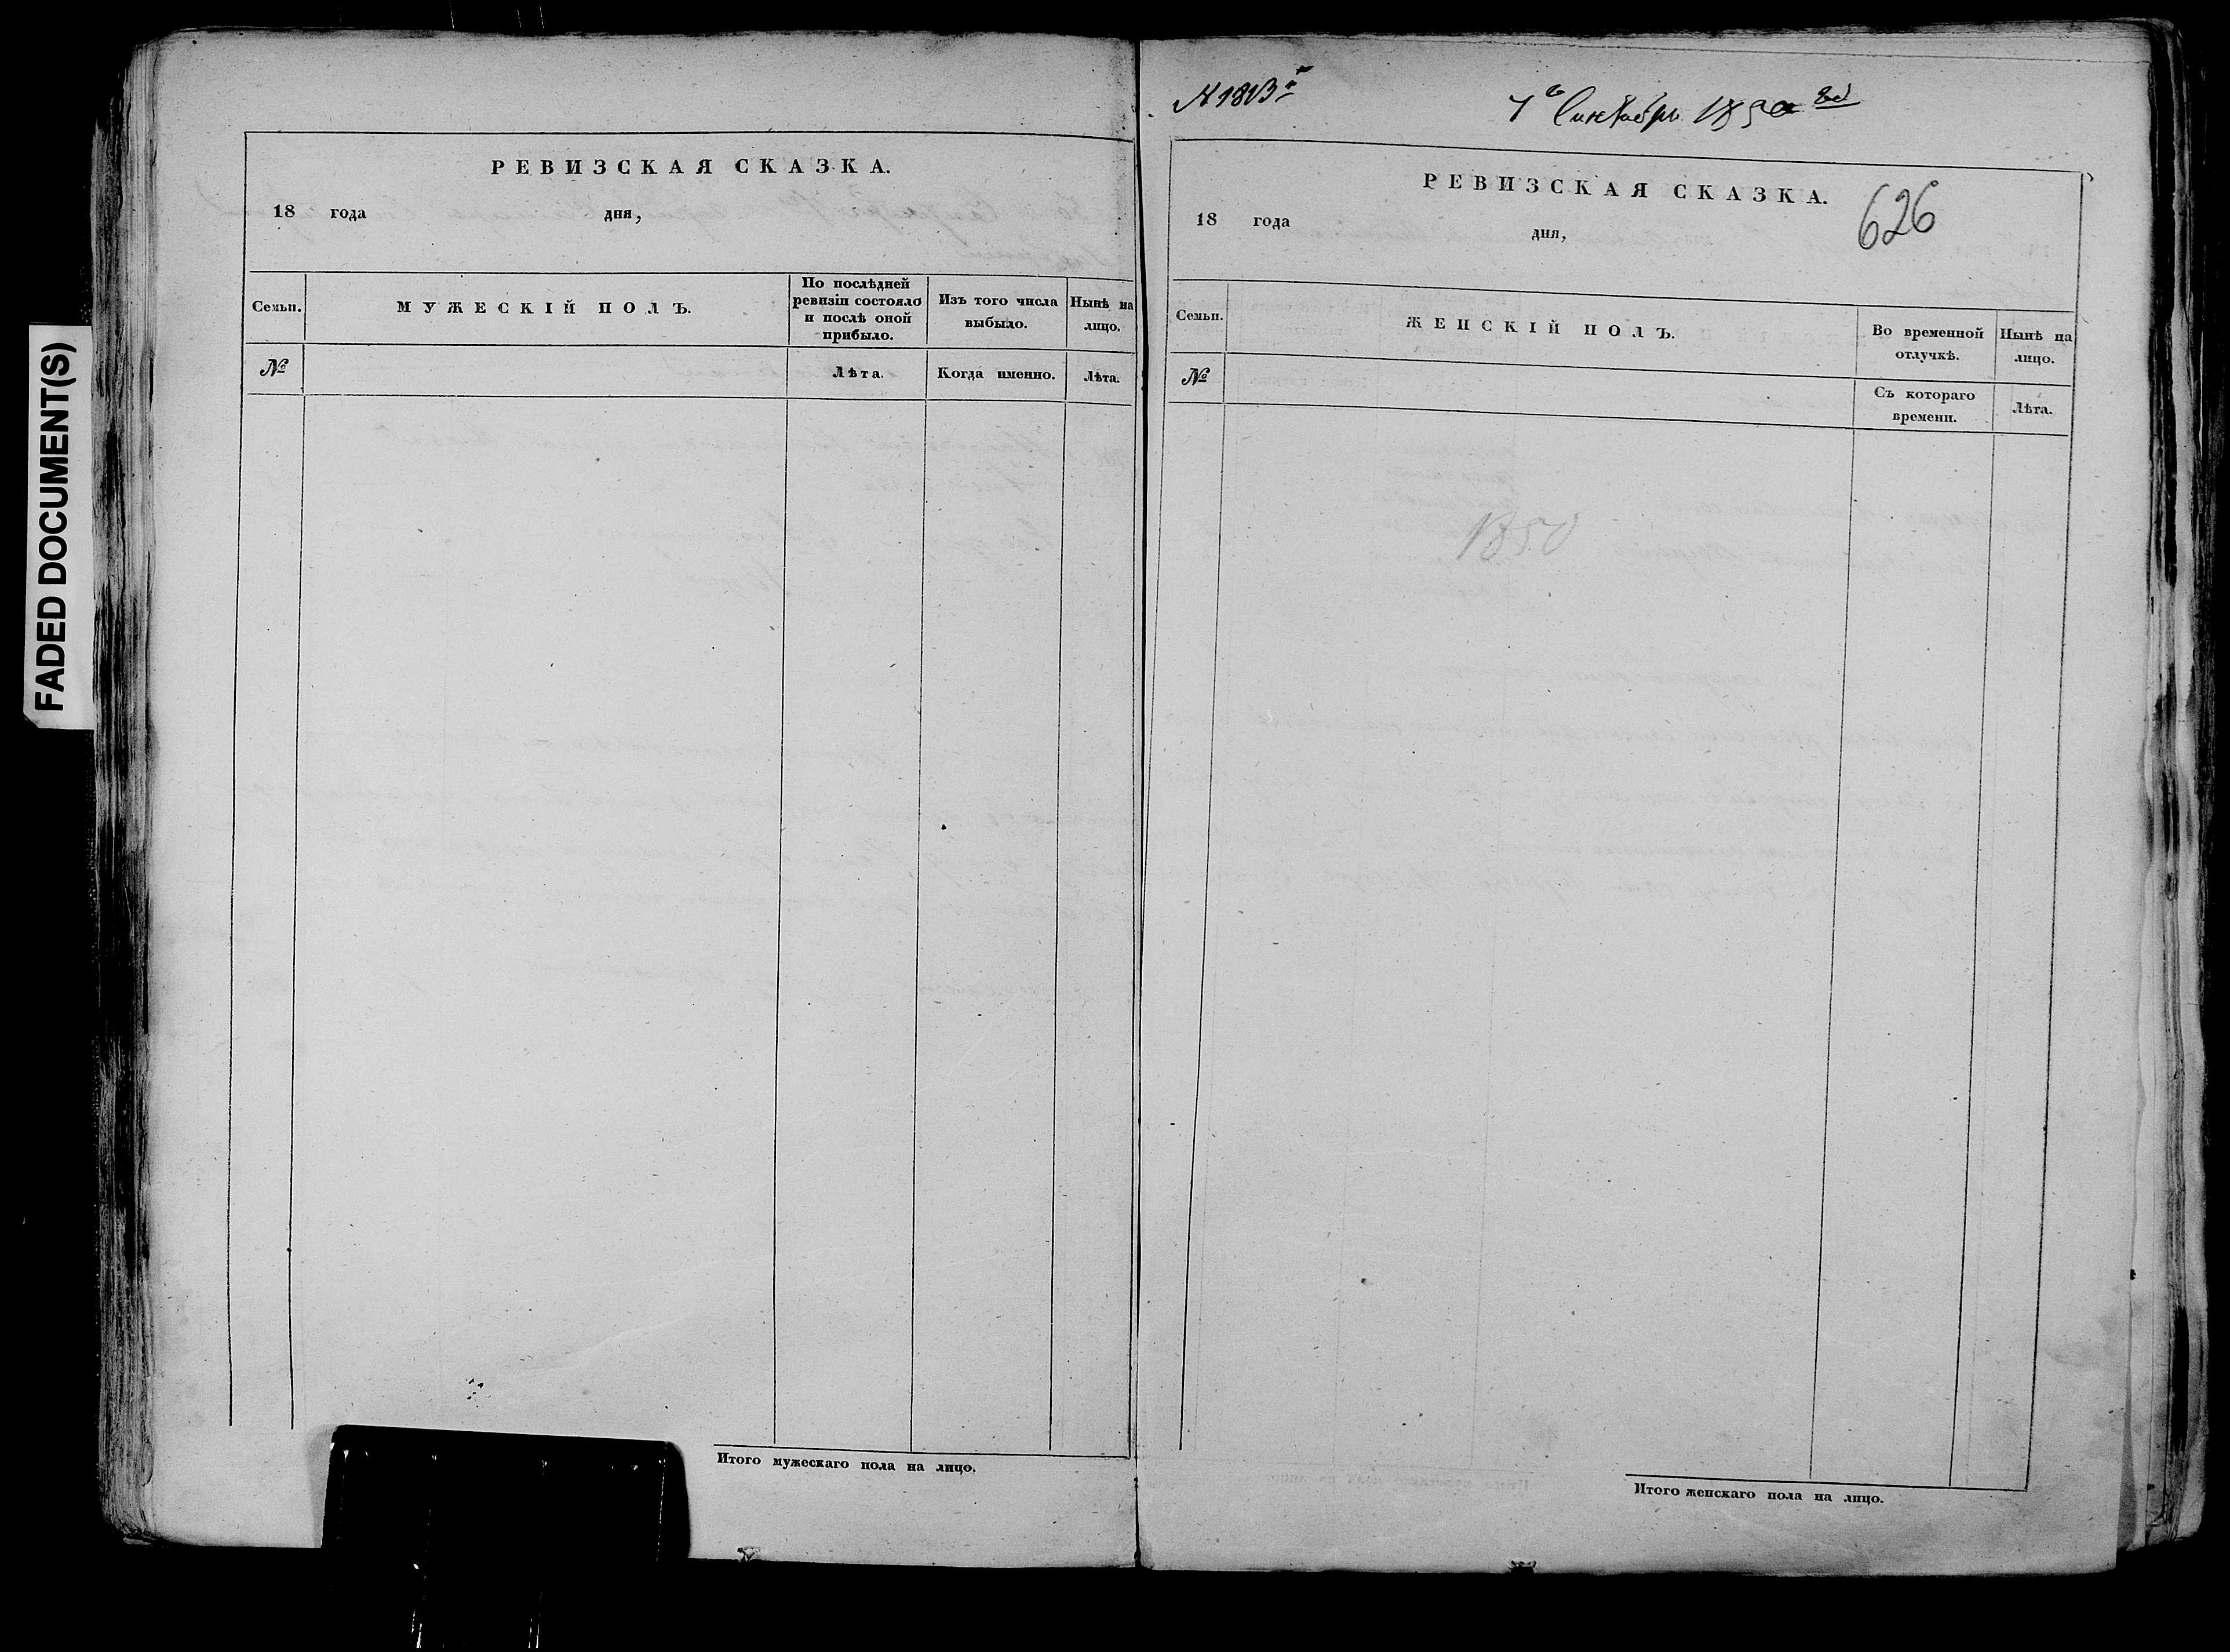 FADED DOCUMENT(S)
РЕВИЗСКАЯ СКАЗКА.
18 года дня,
Семьи.
МУЖЕСКІЙ ПОЛЪ.
По послѣдней
ревизіи состояло
и послѣ оной
прибыло.
Изъ того числа
выбыло.
Нынѣ на
лицо.
№
Лѣта.
Когда именно.
Лѣта.
Итого мужескаго пола на лицо.
7 Сентября 1850
РЕВИЗСКАЯ СКАЗКА.
626
18 года дня,
Семьи.
ЖЕНСКІЙ ПОЛЪ.
Во временной
отлучкѣ.
Нынѣ на
лицо.
№
Съ котораго
времени.
Лѣта.
1850
Итого женскаго пола на лицо.